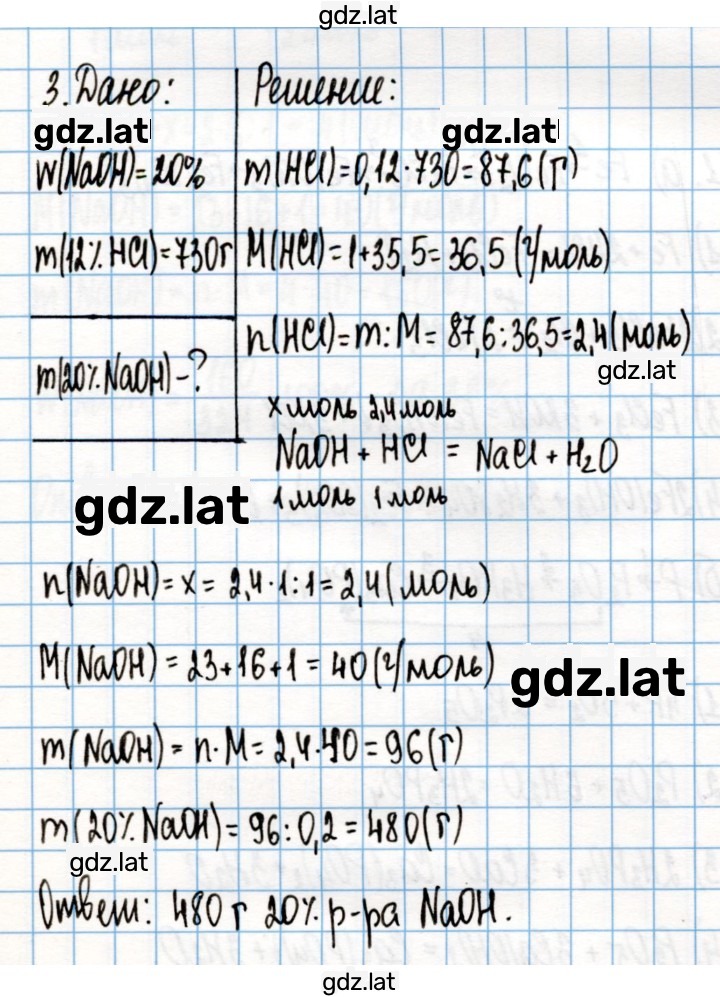 gdz.lat
3. Дано:
gdz.lat
w(NaOH)=20%
m(12% HCl)=730г
m(20% NaOH)-?
Решение:
gdz.lat
m(HCl)=0,12·730=87,6(г)
M(HCl)=1+35,5=36,5(г/моль)
n(HCl)=m:M=87,6:36,5=2,4(моль)
gdz.lat
x моль 2,4 моль
NaOH + HCl = NaCl + H₂O
1 моль 1 моль
gdz.lat
n(NaOH)=x=2,4·1:1=2,4(моль)
M(NaOH)=23+16+1=40(г/моль)
gdz.lat
m(NaOH)=n·M=2,4·40=96(г)
m(20% NaOH)=96:0,2=480(г)
gdz.lat
Ответ: 480 г 20% р-ра NaOH.
gdz.lat